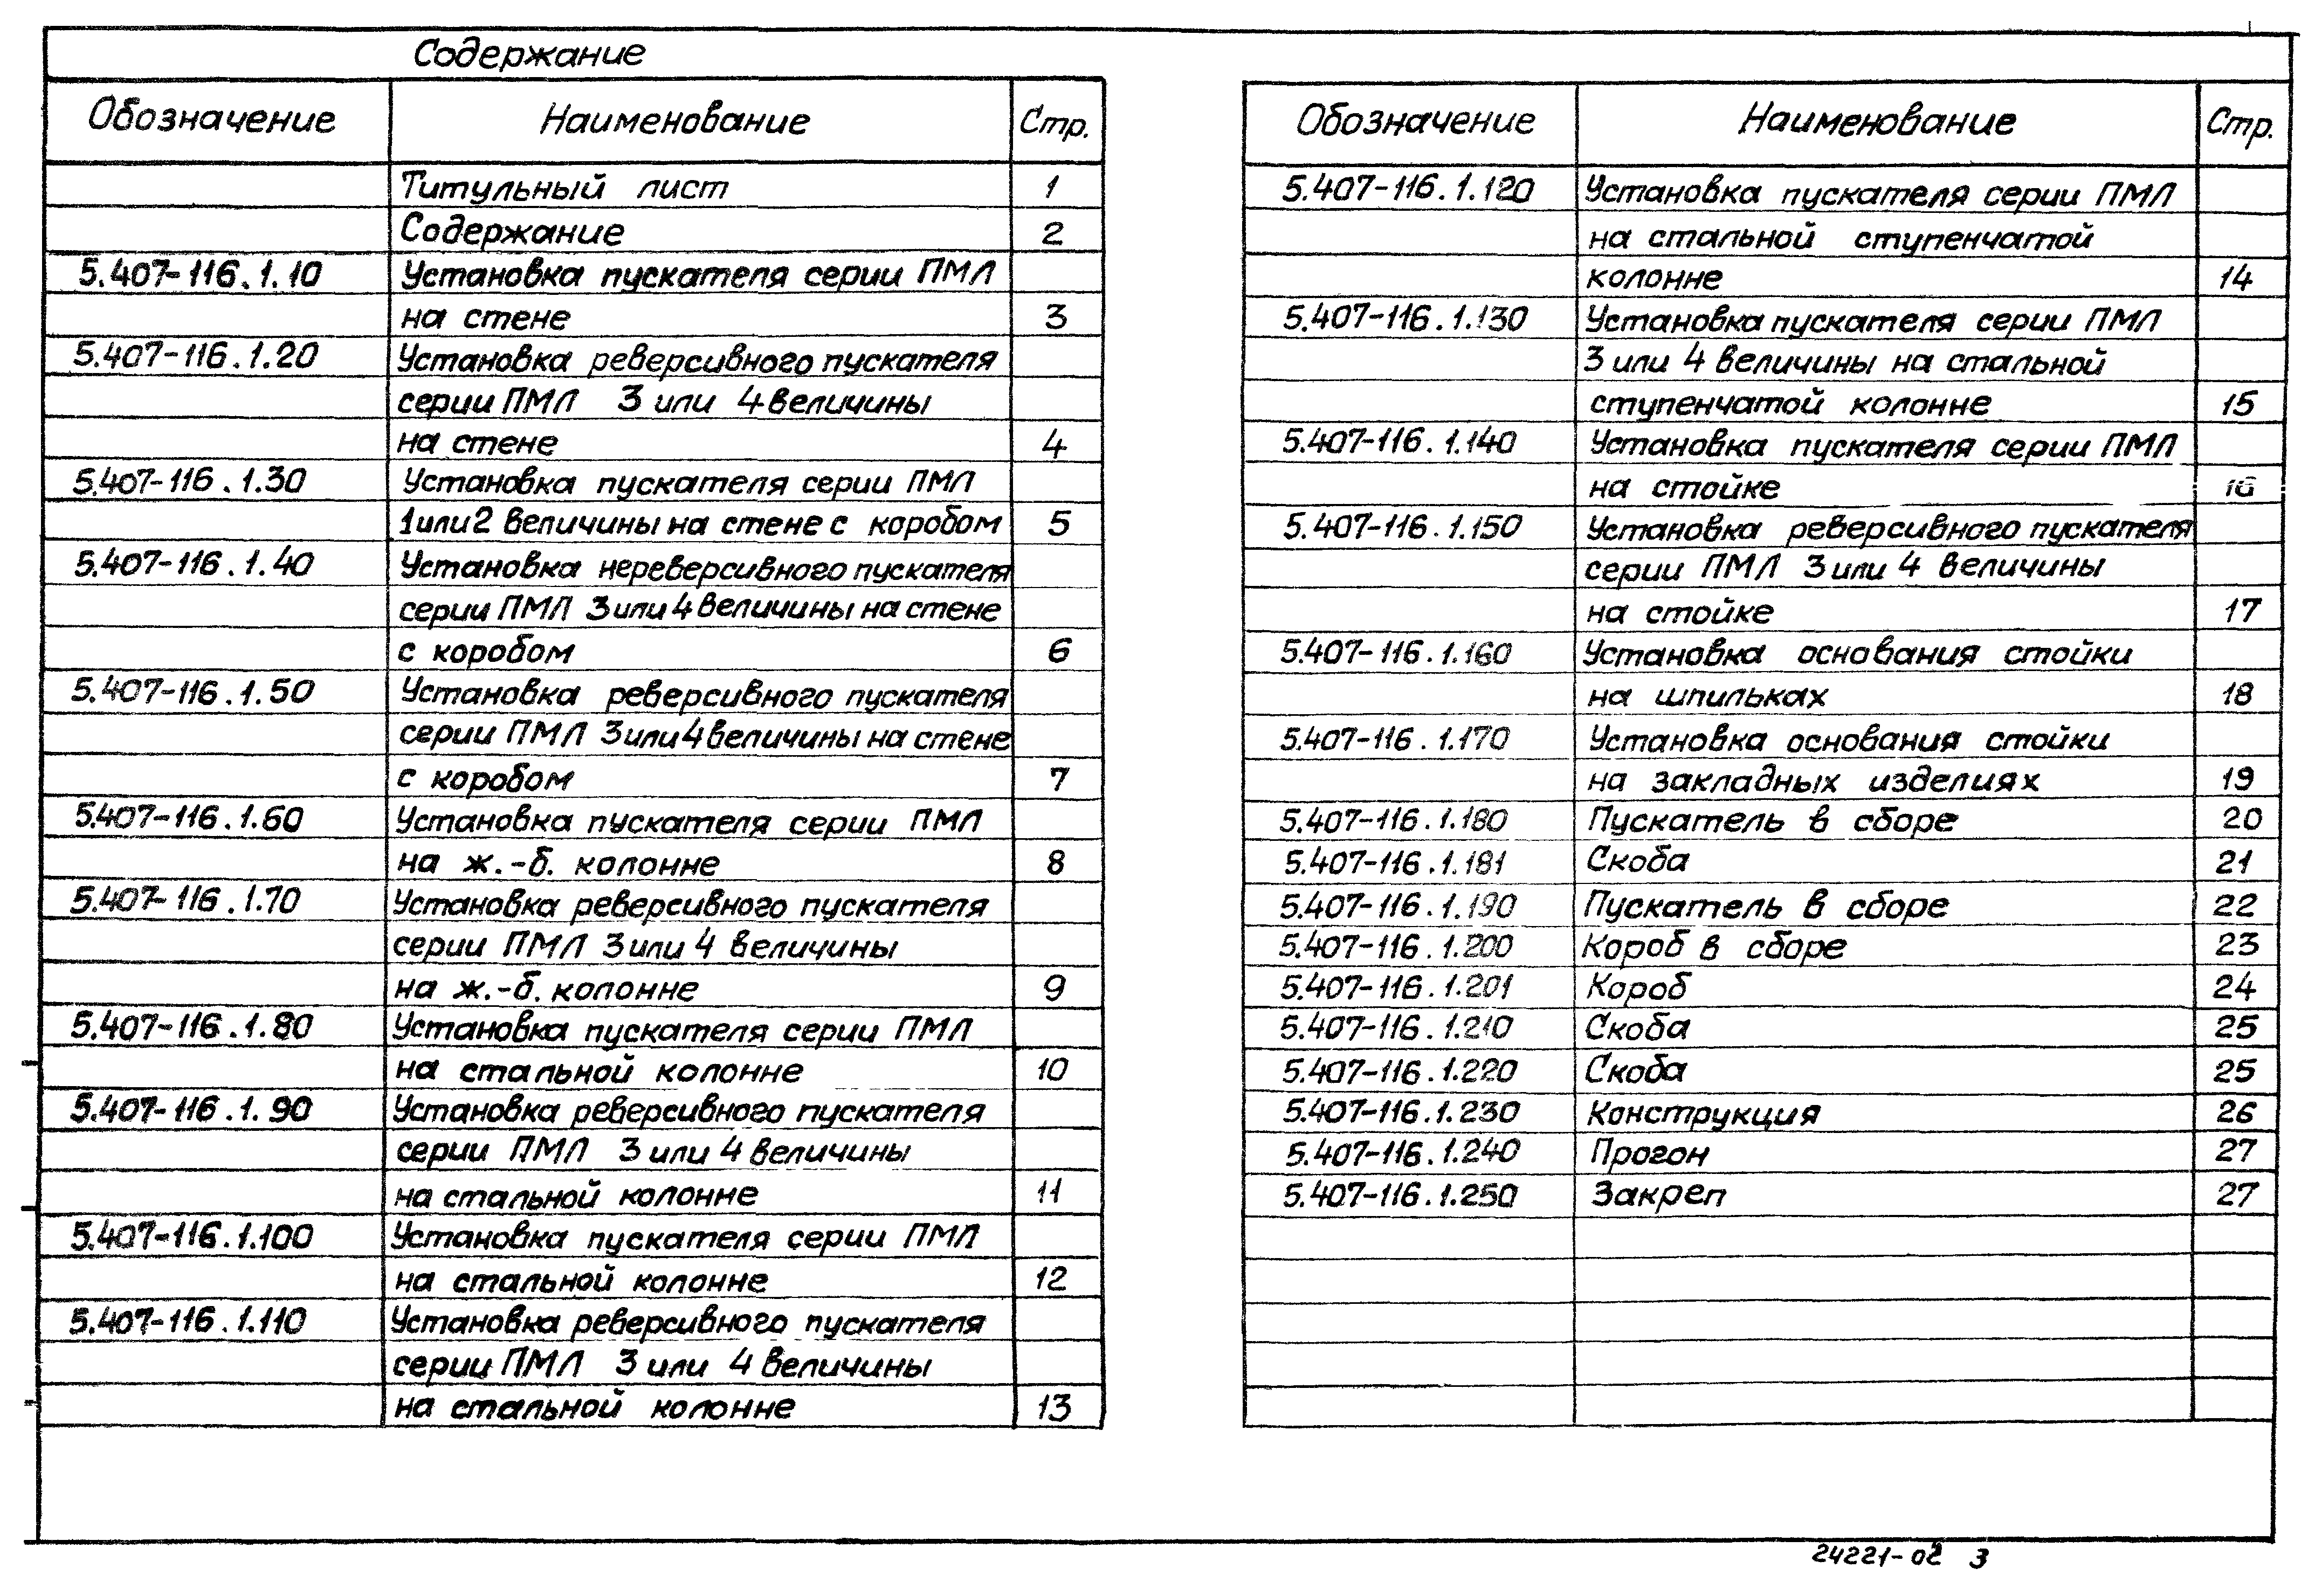 Содержание
Обозначение Наименование Стр.
Титульный лист 1
Содержание 2
5.407-116.1.10 Установка пускателя серии ПМЛ
на стене 3
5.407-116.1.20 Установка реверсивного пускателя
серии ПМЛ 3 или 4 величины
на стене 4
5.407-116.1.30 Установка пускателя серии ПМЛ
1 или 2 величины на стене с коробом 5
5.407-116.1.40 Установка нереверсивного пускателя
серии ПМЛ 3 или 4 величины на стене
с коробом 6
5.407-116.1.50 Установка реверсивного пускателя
серии ПМЛ 3 или 4 величины на стене
с коробом 7
5.407-116.1.60 Установка пускателя серии ПМЛ
на ж.-б. колонне 8
5.407-116.1.70 Установка реверсивного пускателя
серии ПМЛ 3 или 4 величины
на ж.-б. колонне 9
5.407-116.1.80 Установка пускателя серии ПМЛ
на стальной колонне 10
5.407-116.1.90 Установка реверсивного пускателя
серии ПМЛ 3 или 4 величины
на стальной колонне 11
5.407-116.1.100 Установка пускателя серии ПМЛ
на стальной колонне 12
5.407-116.1.110 Установка реверсивного пускателя
серии ПМЛ 3 или 4 величины
на стальной колонне 13
Обозначение Наименование Стр.
5.407-116.1.120 Установка пускателя серии ПМЛ
на стальной ступенчатой
колонне 14
5.407-116.1.130 Установка пускателя серии ПМЛ
3 или 4 величины на стальной
ступенчатой колонне 15
5.407-116.1.140 Установка пускателя серии ПМЛ
на стойке 16
5.407-116.1.150 Установка реверсивного пускателя
серии ПМЛ 3 или 4 величины
на стойке 17
5.407-116.1.160 Установка основания стойки
на шпильках 18
5.407-116.1.170 Установка основания стойки
на закладных изделиях 19
5.407-116.1.180 Пускатель в сборе 20
5.407-116.1.181 Скоба 21
5.407-116.1.190 Пускатель в сборе 22
5.407-116.1.200 Короб в сборе 23
5.407-116.1.201 Короб 24
5.407-116.1.210 Скоба 25
5.407-116.1.220 Скоба 25
5.407-116.1.230 Конструкция 26
5.407-116.1.240 Прогон 27
5.407-116.1.250 Закреп 27
24221-02 3